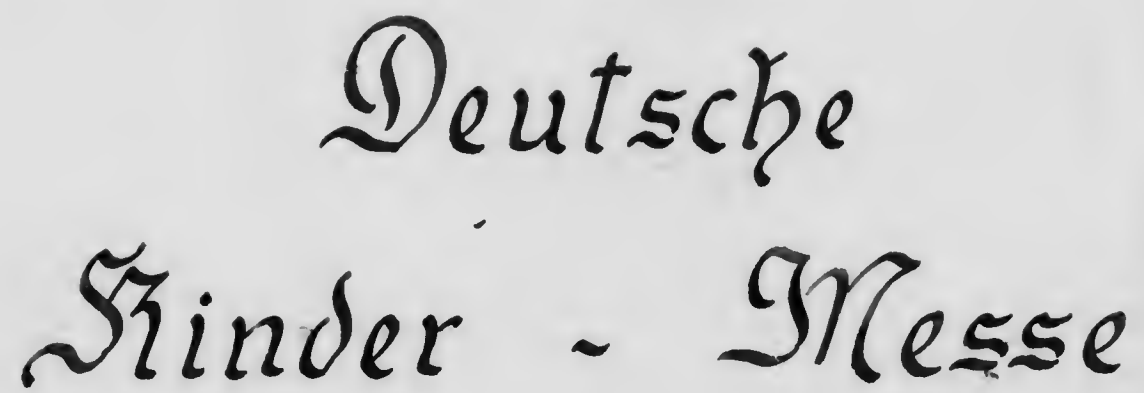 Deutsche
Kinder - Messe